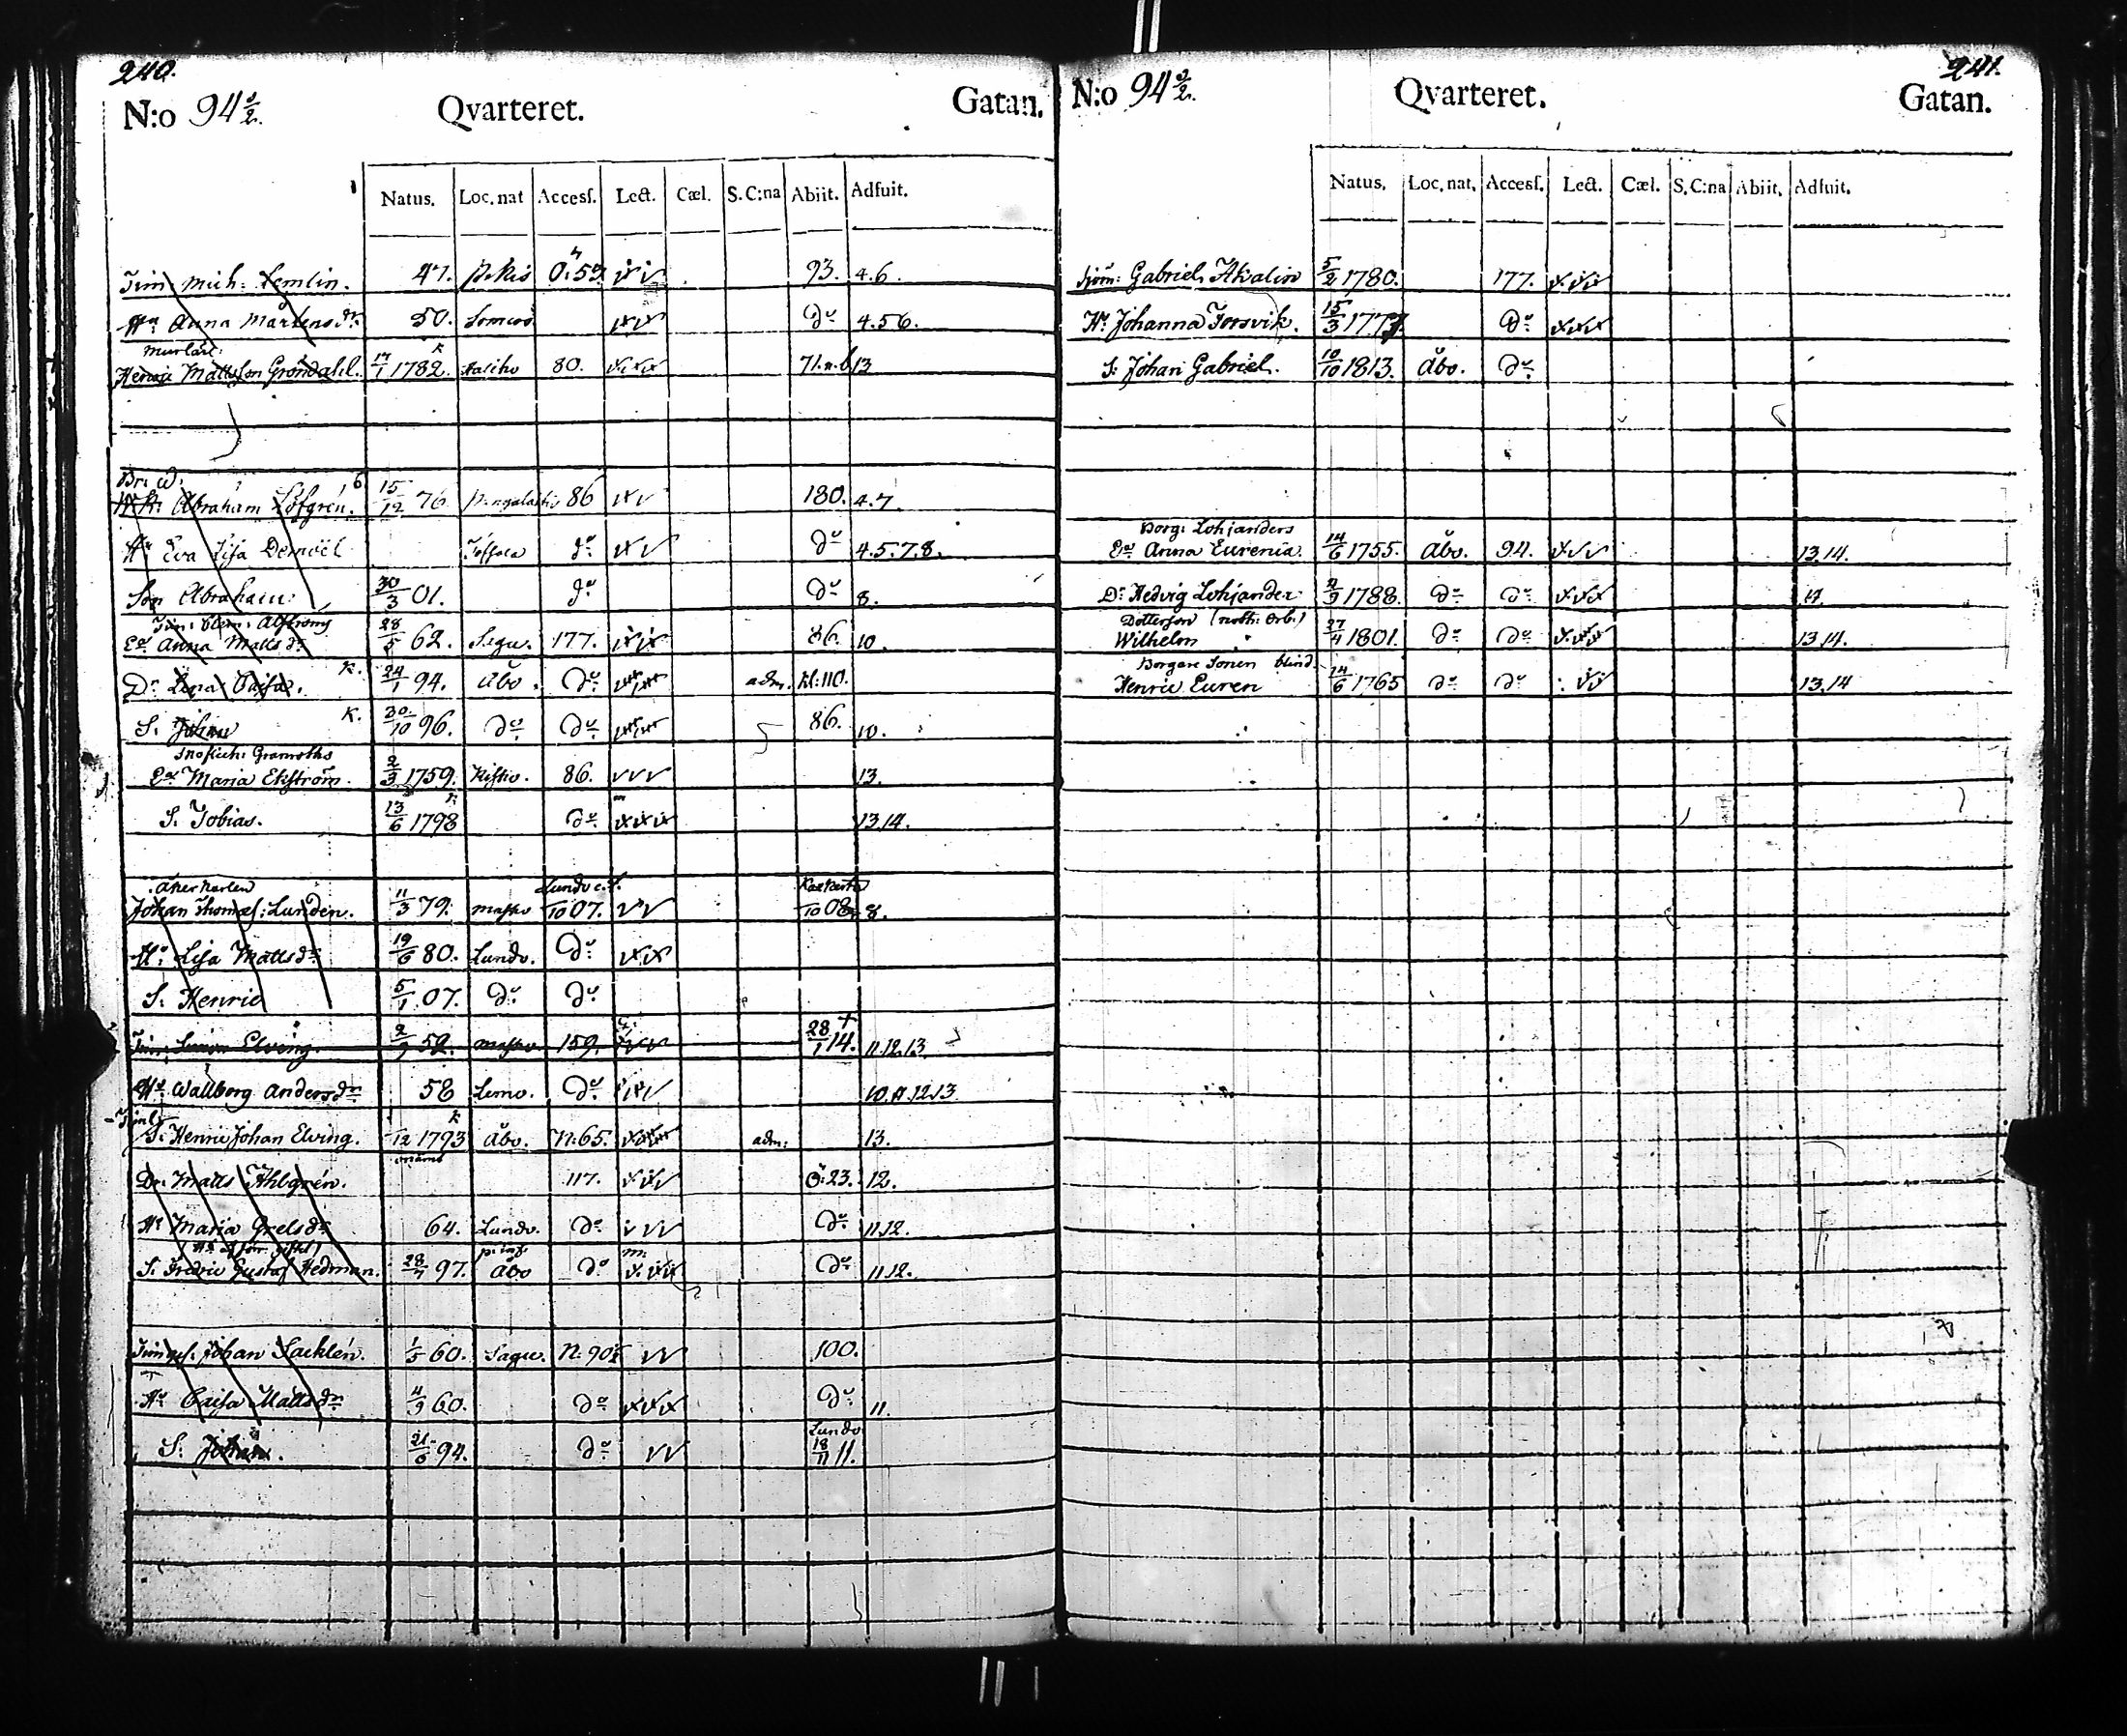 240.
N:o 94 3/2. Qvarteret. Gatan.
Natus. Loc. nat Accesſ. Lect. Cæl. S. C:na Abiit. Adfuit.
Tim: Mich: Lemlin. 47. P:kis 0:59. 93. 4.6.
Hu Anna Mårtensdr 50. do 4.5.6.
Murlärl:
Henric Mattsson Gröndahl. 17/1 1782. 80. 71.n.b 13
Abraham Löfgrén. 15/12 76. 86 180. 4.7.
Hu Eva Lisa do do 4.5.7.8.
Son Abraham 30/3 01. do do 8.
Ea Anna Mattsdr 28/5 62. Sagu. 177. 86. 10.
Dr Lena Caisa. K. 24/1 94. Åbo. do adm. kl:110.
S. Johan K. 30/10 96. do do 86. 10.
Ea Maria Ekström. 2/3 1759. Kisko. 86. 13.
S. Tobias. 13/6 1798 do 13.14.
Åkerkarlen Lundo
Johan Thomas: Lundén. 11/3 79. Masko /10 07. /10 08 8.
Hu Lisa Mattsdr 19/6 80. Lundo. do
S. Henric 5/1 07. do do
Tim: Simon Elving. 52. Masko 159. 28/1 14. + 11.12.13
Hu Wallborg Andersdr 58 Lemo. do 10.11.12.13
S. Henric Johan Elving. /12 1793 Åbo. N:65. adm: 13.
Dr. Matts Ahlgrén. 117. Ö:23. 12.
Hu Maria Grelsdr 64. Lundo. do do 11.12.
S. Fredric Gustaf Hedman. 28/7 97. Åbo do do 11.12.
Johan Sacklén. 1/5 60. Sagu. N:90 100.
Hu Caisa Mattsdr 11/9 60. do do 11.
Lundo
S. Johan. 21/6 94. do 18/11 11.
241.
N:o 94 3/2. Qvarteret. Gatan.
Natus. Loc. nat. Accesſ. Lect. Cæl. S. C:na Abiit. Adfuit.
Sjöm: Gabriel Akalin 5/2 1780. 177.
Hu Johanna Forsvik. 15/3 1777. do
S. Johan Gabriel. 10/10 1813. Åbo. do
Borg: Lohjanders
Ea Anna Eurenia. 14/6 1755. Åbo. 94. 13.14.
Dr Hedvig Lohjander 1788. do do 14.
Dotterson (noth: orb.)
Wilhelm 27/4 1801. do do 13.14.
Borgare Sonen blind.
Henric Euren 14/6 1765 do do 13.14